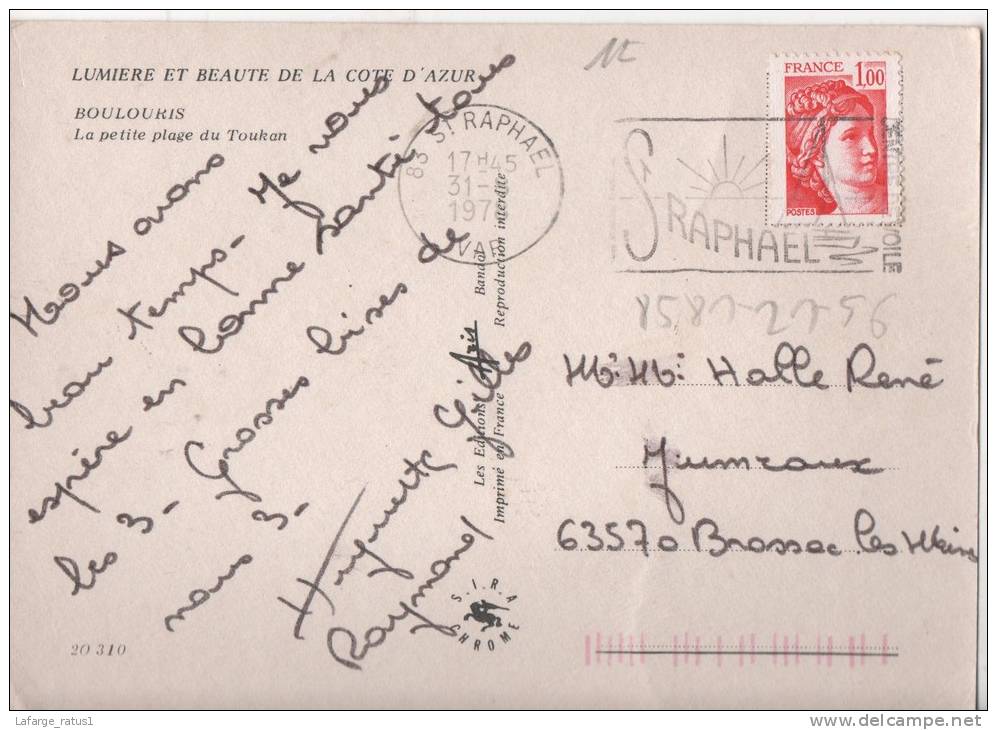 LUMIERE ET BEAUTE DE LA COTE D'AZUR
BOULOURIS
La petite plage du Toukan
Nous avons
beau temps- Je vous
espère en bonne santé tous
les 3- Grosses bises de
nous 3-
Huguette Gilles
Raymond
20 310
Les Editions Aris Bandol
Imprimé en France Reproduction interdite
S.I.R.A
CHROME
83 St RAPHAEL
17H45
31-
VAR
St RAPHAEL
VOILE
FRANCE
1,00
POSTES
Halle René
Jumeaux
63570 Brassac les Mines
Lafarge_ratus1
www.delcampe.net